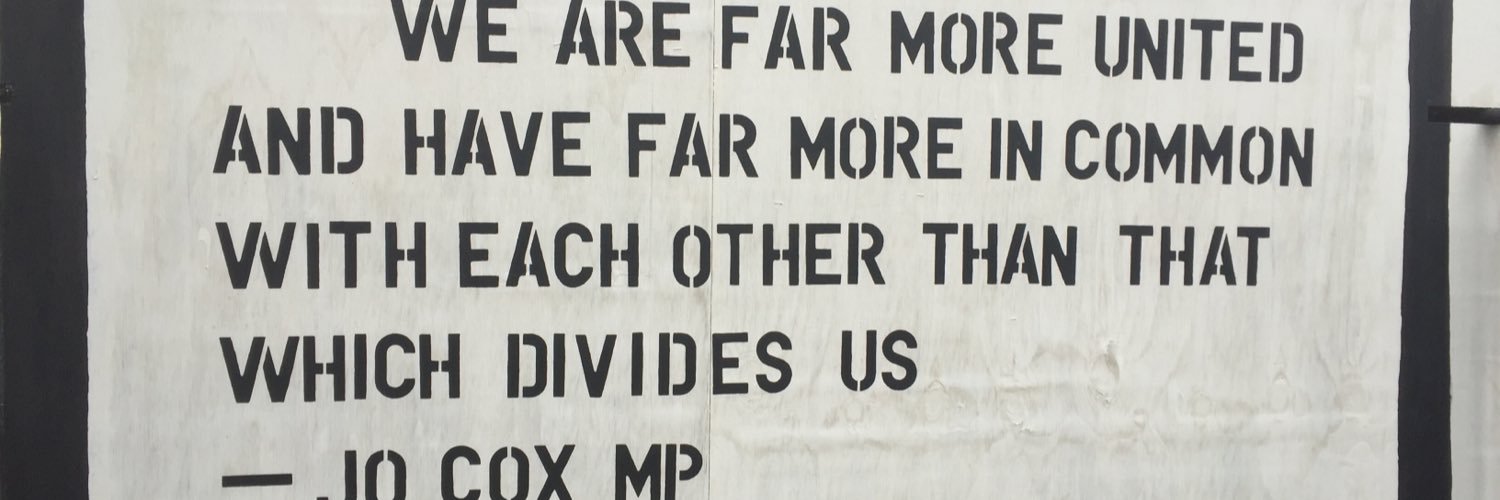 WE ARE FAR MORE UNITED
AND HAVE FAR MORE IN COMMON
WITH EACH OTHER THAN THAT
WHICH DIVIDES US
— JO COX MP